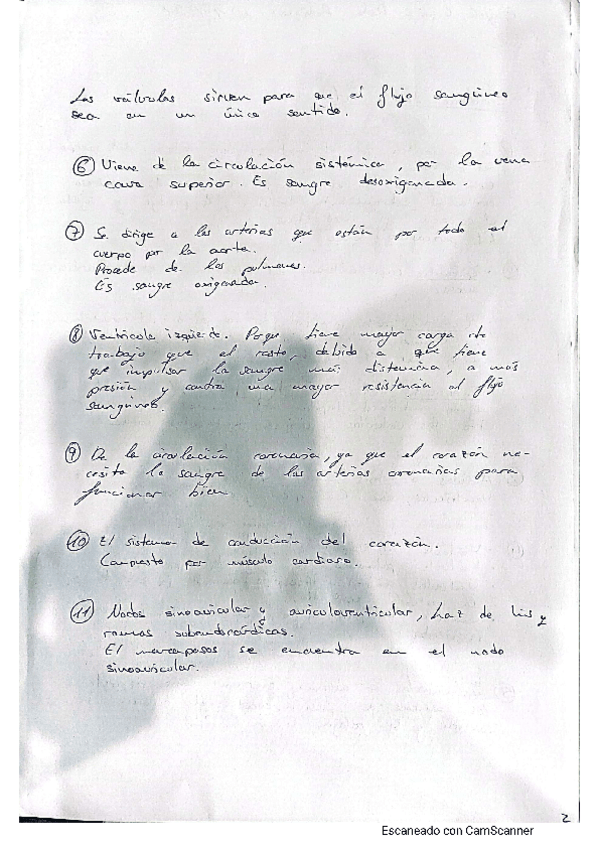 Las válvulas sirven para que el flujo sanguíneo
sea en un único sentido.
⑥ Viene de la circulación sistémica, por la vena
cava superior. Es sangre desoxigenada.
⑦ Se dirige a las arterias que están por todo el
cuerpo por la aorta.
Procede de los pulmones.
Es sangre oxigenada.
⑧ Ventrículo izquierdo. Porque tiene mayor carga de
trabajo que el resto, debido a que tiene
que impulsar la sangre más distancia, a más
presión y contra una mayor resistencia al flujo
sanguíneo.
⑨ De la circulación coronaria, ya que el corazón ne-
cesita la sangre de las arterias coronarias para
funcionar bien
⑩ El sistema de conducción del corazón.
Compuesto por músculo cardiaco.
⑪ Nodos sinoauricular y auriculoventricular, haz de his y
ramas subendocárdicas.
El marcapasos se encuentra en el nodo
sinoauricular.
2
Escaneado con CamScanner